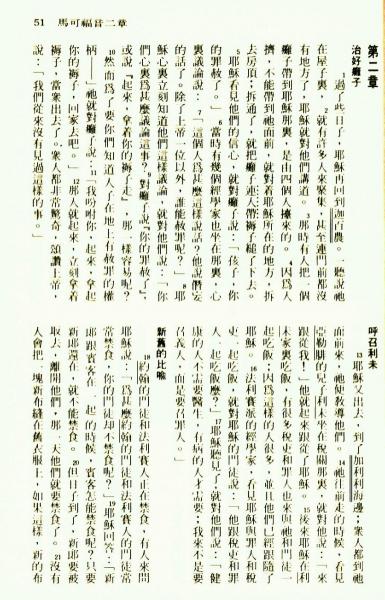 51 馬可福音二章
第二章
治好癱子
1過了些日子，耶穌再回到迦百農。聽說祂
在屋子裏，2就有許多人來聚集，甚至連門前都沒
有地方了，耶穌就對他們講道。3那時有人把一個
癱子帶到耶穌那裏，是由四個人擡來的。4因爲人
擠，不能帶到祂面前，就對着耶穌所在的地方，拆
去房頂；拆通了，就把癱子連人帶褥子縋了下去。
5耶穌看見他們的信心，就對癱子說：「孩子，你
的罪赦了。」6當時有幾個經學家也坐在那裏，心
裏議論說：7「這個人爲甚麼這樣說話？他說僭妄
的話了。除了上帝一位以外，誰能赦罪呢？」8耶
穌心裏立刻知道他們這樣議論，就對他們說：「你
們心裏爲甚麼議論這事？9對癱子說『你的罪赦了』，
或說『起來，拿着你的褥子走』，那一樣容易呢？
10然而爲了要你們知道人子在地上有赦罪的權
柄——」祂就對癱子說：11「我吩咐你，起來，拿起
你的褥子，回家去吧。」12那人就起來，立刻拿着
褥子，當衆出去了。衆人都非常驚奇，頌讚上帝，
說：「我們從來沒有見過這樣的事。」
呼召利未
13耶穌又出去，到了加利利海邊；衆人都到祂
面前來，祂便教導他們。14祂往前走的時候，看見
亞勒腓的兒子利未坐在稅關那裏，就對他說：「來
跟從我！」他就起來跟從了耶穌。15後來耶穌在利
未家裏吃飯，有很多稅吏和罪人也來與祂和門徒一
起吃飯；因爲這樣的人很多，並且他們已經跟隨了
耶穌。16法利賽派的經學家，看見耶穌與罪人和稅
吏一起吃飯，就對耶穌的門徒說：「他跟稅吏和罪
人一起吃飯麼？」17耶穌聽見了，就對他們說：「健
康的人不需要醫生，有病的人才需要；我來不是要
召義人，而是要召罪人。」
新舊的比喻
18約翰的門徒和法利賽人正在禁食，有人來問
耶穌說：「爲甚麼約翰的門徒和法利賽人的門徒當
常禁食，你的門徒却不禁食呢？」19耶穌回答：「新
郎跟賓客在一起的時候，賓客怎能禁食呢？只要
新郎還在，就不能禁食。20但日子到了，新郎要被
取去，離開他們，那一天他們就要禁食了。21沒有
人會把一塊新布縫在舊衣服上，如果這樣，新的布